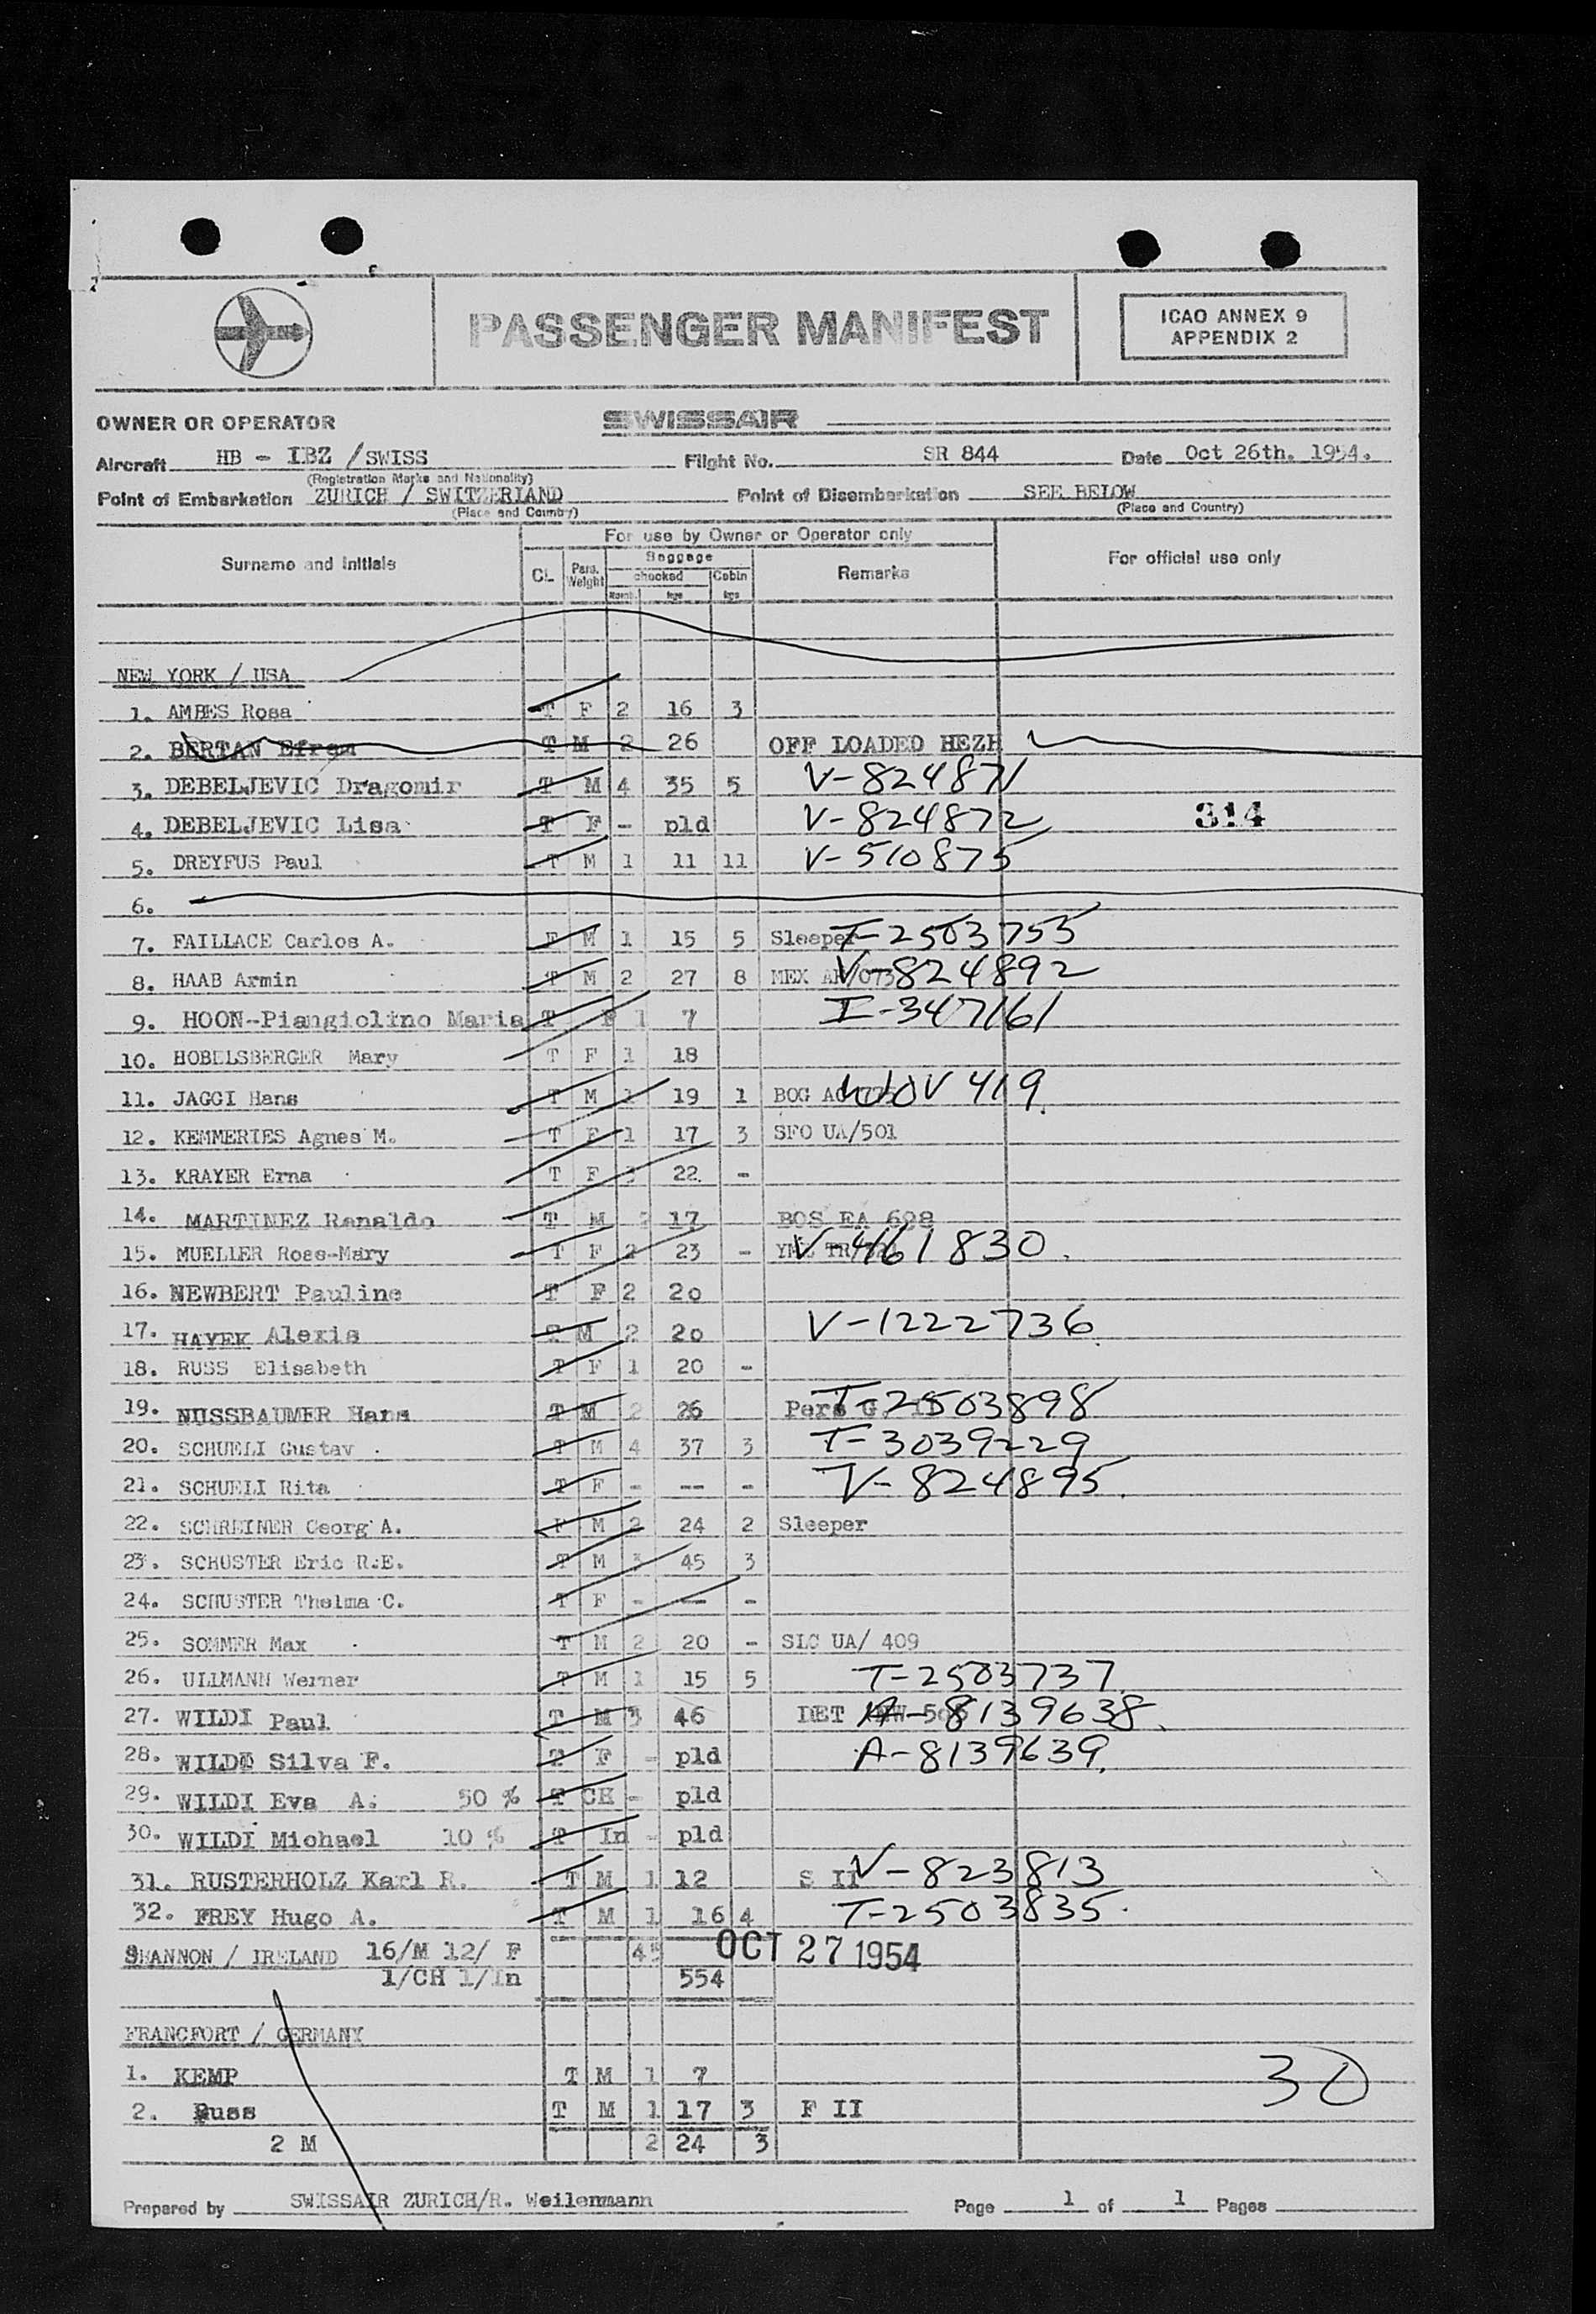 PASSENGER MANIFEST
ICAO ANNEX 9
APPENDIX 2
OWNER OR OPERATOR SWISSAIR
Aircraft HB - IBZ / SWISS Flight No. SR 844 Date Oct 26th. 1954.
(Registration Marks and Nationality)
Point of Embarkation ZURICH / SWITZERLAND Point of Disembarkation SEE BELOW
(Place and Country) (Place and Country)
For use by Owner or Operator only
Surname and Initials CL. Pass. Weight Baggage checked Numb. kgs Cabin kgs Remarks For official use only
NEW YORK / USA
1. AMBES Rosa T F 2 16 3
2. BERTAN Efrem T M 2 26 OFF LOADED HEZH
3. DEBELJEVIC Dragomir T M 4 35 5 V-824871
4. DEBELJEVIC Lisa T F - pld V-824872 314
5. DREYFUS Paul T M 1 11 11 V-510875
6.
7. FAILLACE Carlos A. F M 1 15 5 Sleeper T-2503753
8. HAAB Armin T M 2 27 8 MEX V-824892
9. HOON-Piangiolino Maria T F 1 7 I-347161
10. HOBELSBERGER Mary T F 1 18
11. JAGGI Hans T M 1 19 1 BOG 419.
12. KEMMERIES Agnes M. T F 1 17 3 SFO UA/501
13. KRAYER Erna T F 3 22 -
14. MARTINEZ Renaldo T M 17 BOS EA 698
15. MUELLER Rose-Mary T F 2 23 - V-461830.
16. NEWBERT Pauline T F 2 20
17. HAYEK Alexis T M 2 20 V-1222736
18. RUSS Elisabeth T F 1 20 -
19. NUSSBAUMER Hans T M 2 26 T-2503898
20. SCHUELI Gustav T M 4 37 3 T-3039229
21. SCHUELI Rita T F - -- - V-824895.
22. SCHREINER Georg A. F M 2 24 2 Sleeper
23. SCHUSTER Eric R.E. T M 3 45 3
24. SCHUSTER Thelma C. T F - -- -
25. SOMMER Max T M 2 20 - SLC UA/ 409
26. ULLMANN Werner T M 1 15 5 T-2503737.
27. WILDI Paul T M 3 46 DET A-8139638.
28. WILDI Silva F. T F - pld A-8139639.
29. WILDI Eva A. 50 % T CH - pld
30. WILDI Michael 10 % T In - pld
31. RUSTERHOLZ Karl R. T M 1 12 S II V-823813
32. FREY Hugo A. T M 1 16 4 T-2503835.
SHANNON / IRELAND 16/M 12/ F 45 OCT 27 1954
1/CH 1/In 554
FRANCFORT / GERMANY
1. KEMP T M 1 7 30
2. Russ T M 1 17 3 F II
2 M 2 24 3
Prepared by SWISSAIR ZURICH/R. Weilenmann Page 1 of 1 Pages